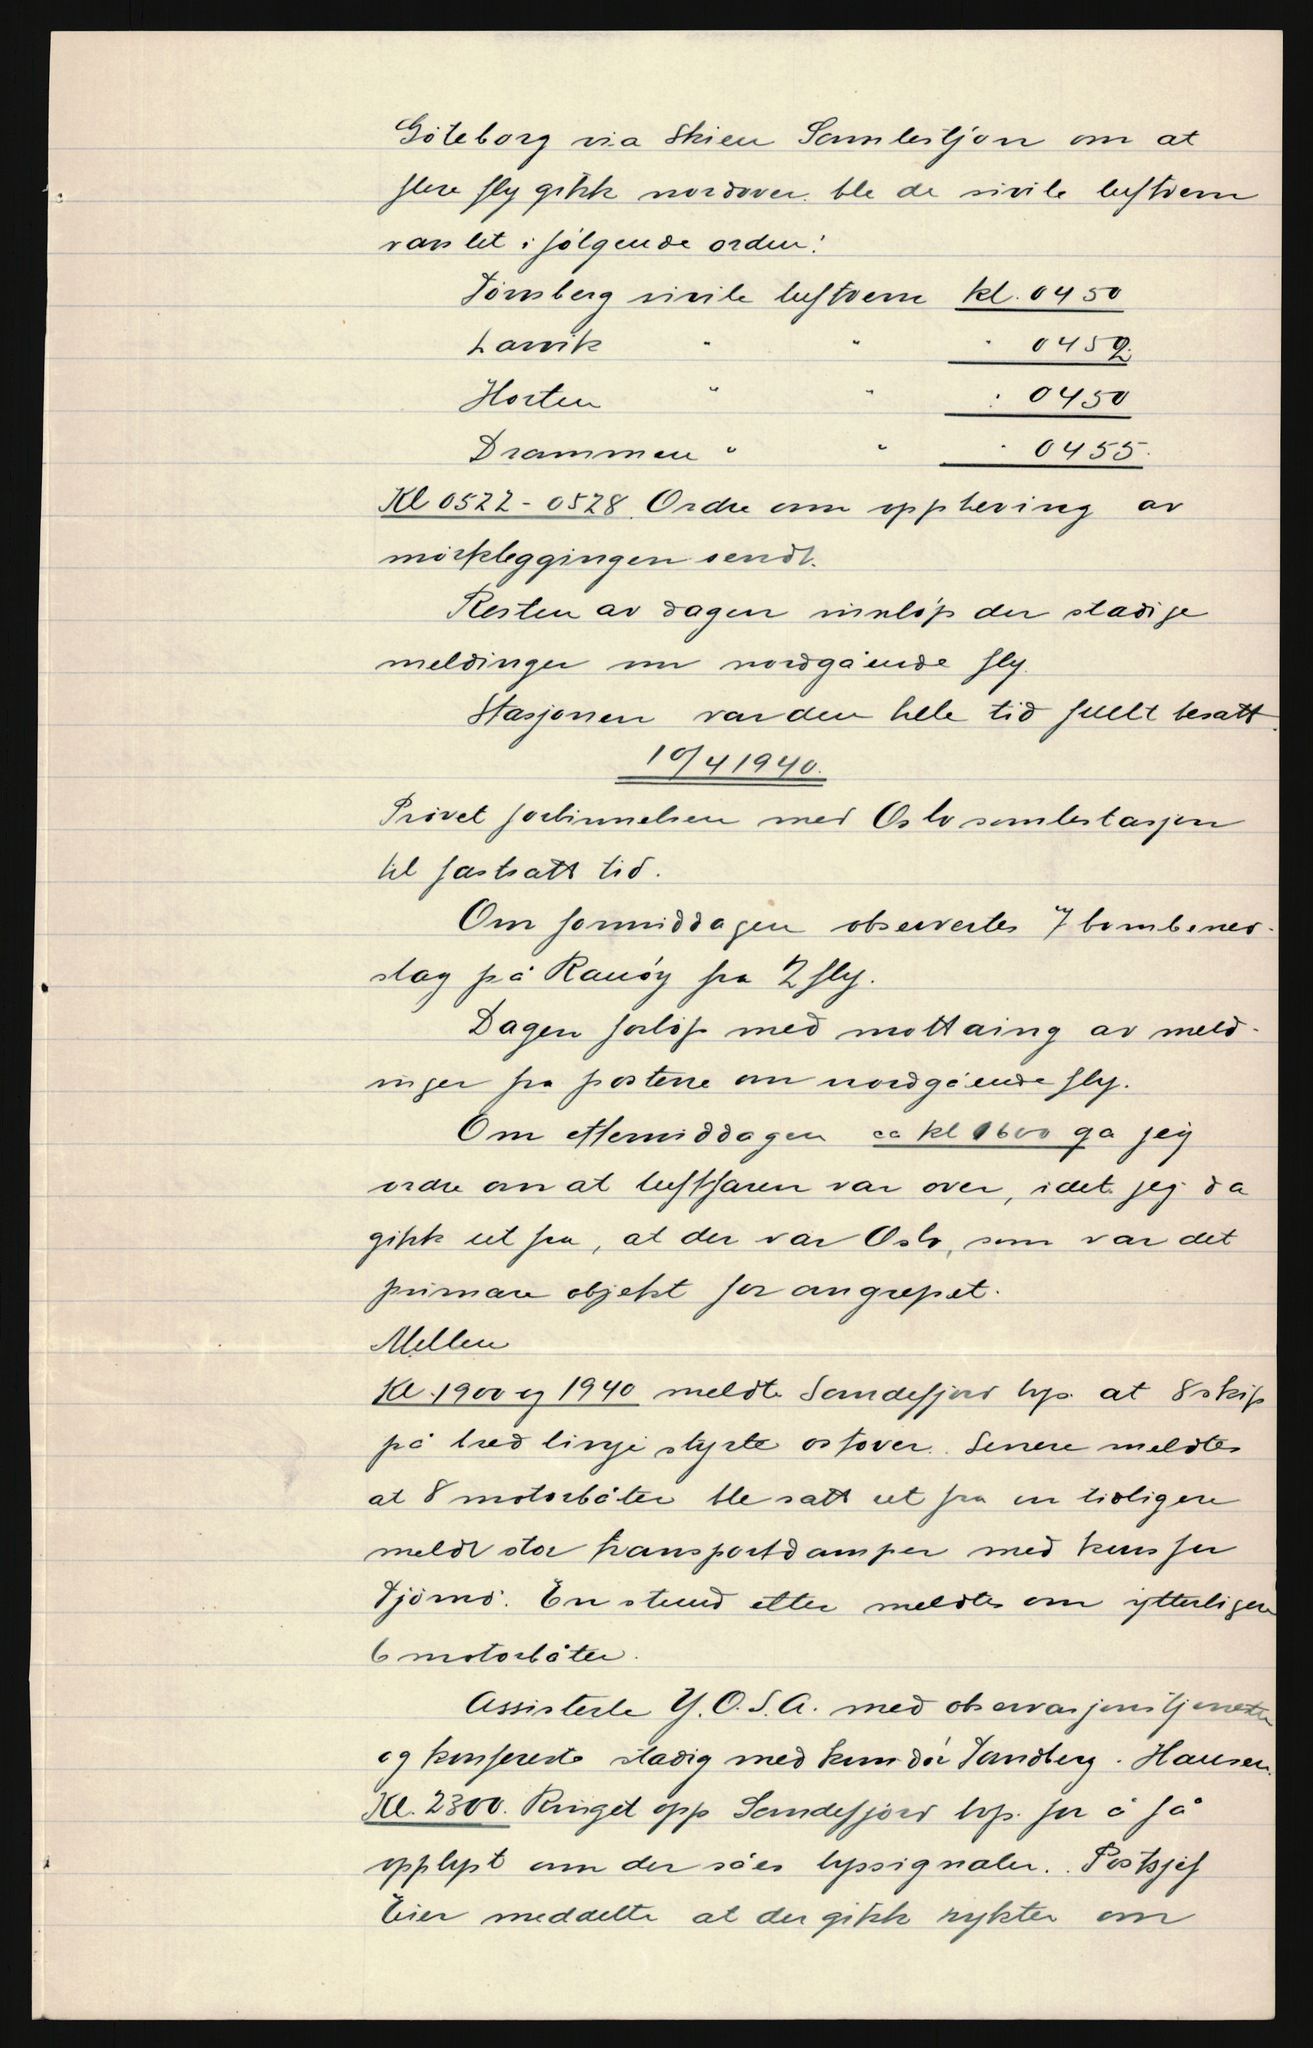 Göteborg via Skien Samlestjon om at
flere fly gikk nordover. ble de sivile luftvern
varslet i følgende orden:
Tönsberg sivile luftvern kl. 0450
Larvik " " " 0452.
Horten " " " 0450
Drammen " " " 0455.
Kl 0522 - 0528. Ordre om oppheving av
mörkleggingen sendt.
Resten av dagen innlöp der stadige
meldinger om nordgående fly.
Stasjonen var den hele tid fullt besatt.
10/4 1940.
Prövet forbinnelsen med Oslo samlestasjon
til fastsatt tid.
Om formiddagen observertes 7 bombened-
slag på Rauöy fra 2 fly.
Dagen forlöp med mottaing av meld-
inger fra postene om nordgående fly.
Om ettermiddagen ca kl 1600 ga jeg
ordre om at luftfaren var over, idet jeg da
gikk ut fra, at der var Oslo, som var det
primære objekt for angrepet.
Mellem
Kl. 1900 og 1940 meldte Sandefjord lvp. at 8 skip
på bred linje styrte östover. Senere meldtes
at 8 motorbåter ble satt ut fra en tidligere
meldt stor transportdamper med kurs for
Tjömö. En stund etter meldtes om ytterligere
6 motorbåter.
Assisterte Y.O.S.A. med observasjonstjenesten
og konfererte stadig med komdör Tandberg-Hansen.
Kl. 2300. Ringet opp Sandefjord lvp. for å få
opplyst om der såes lyssignaler. Postsjef
Eier meddelte at der gikk rykter om